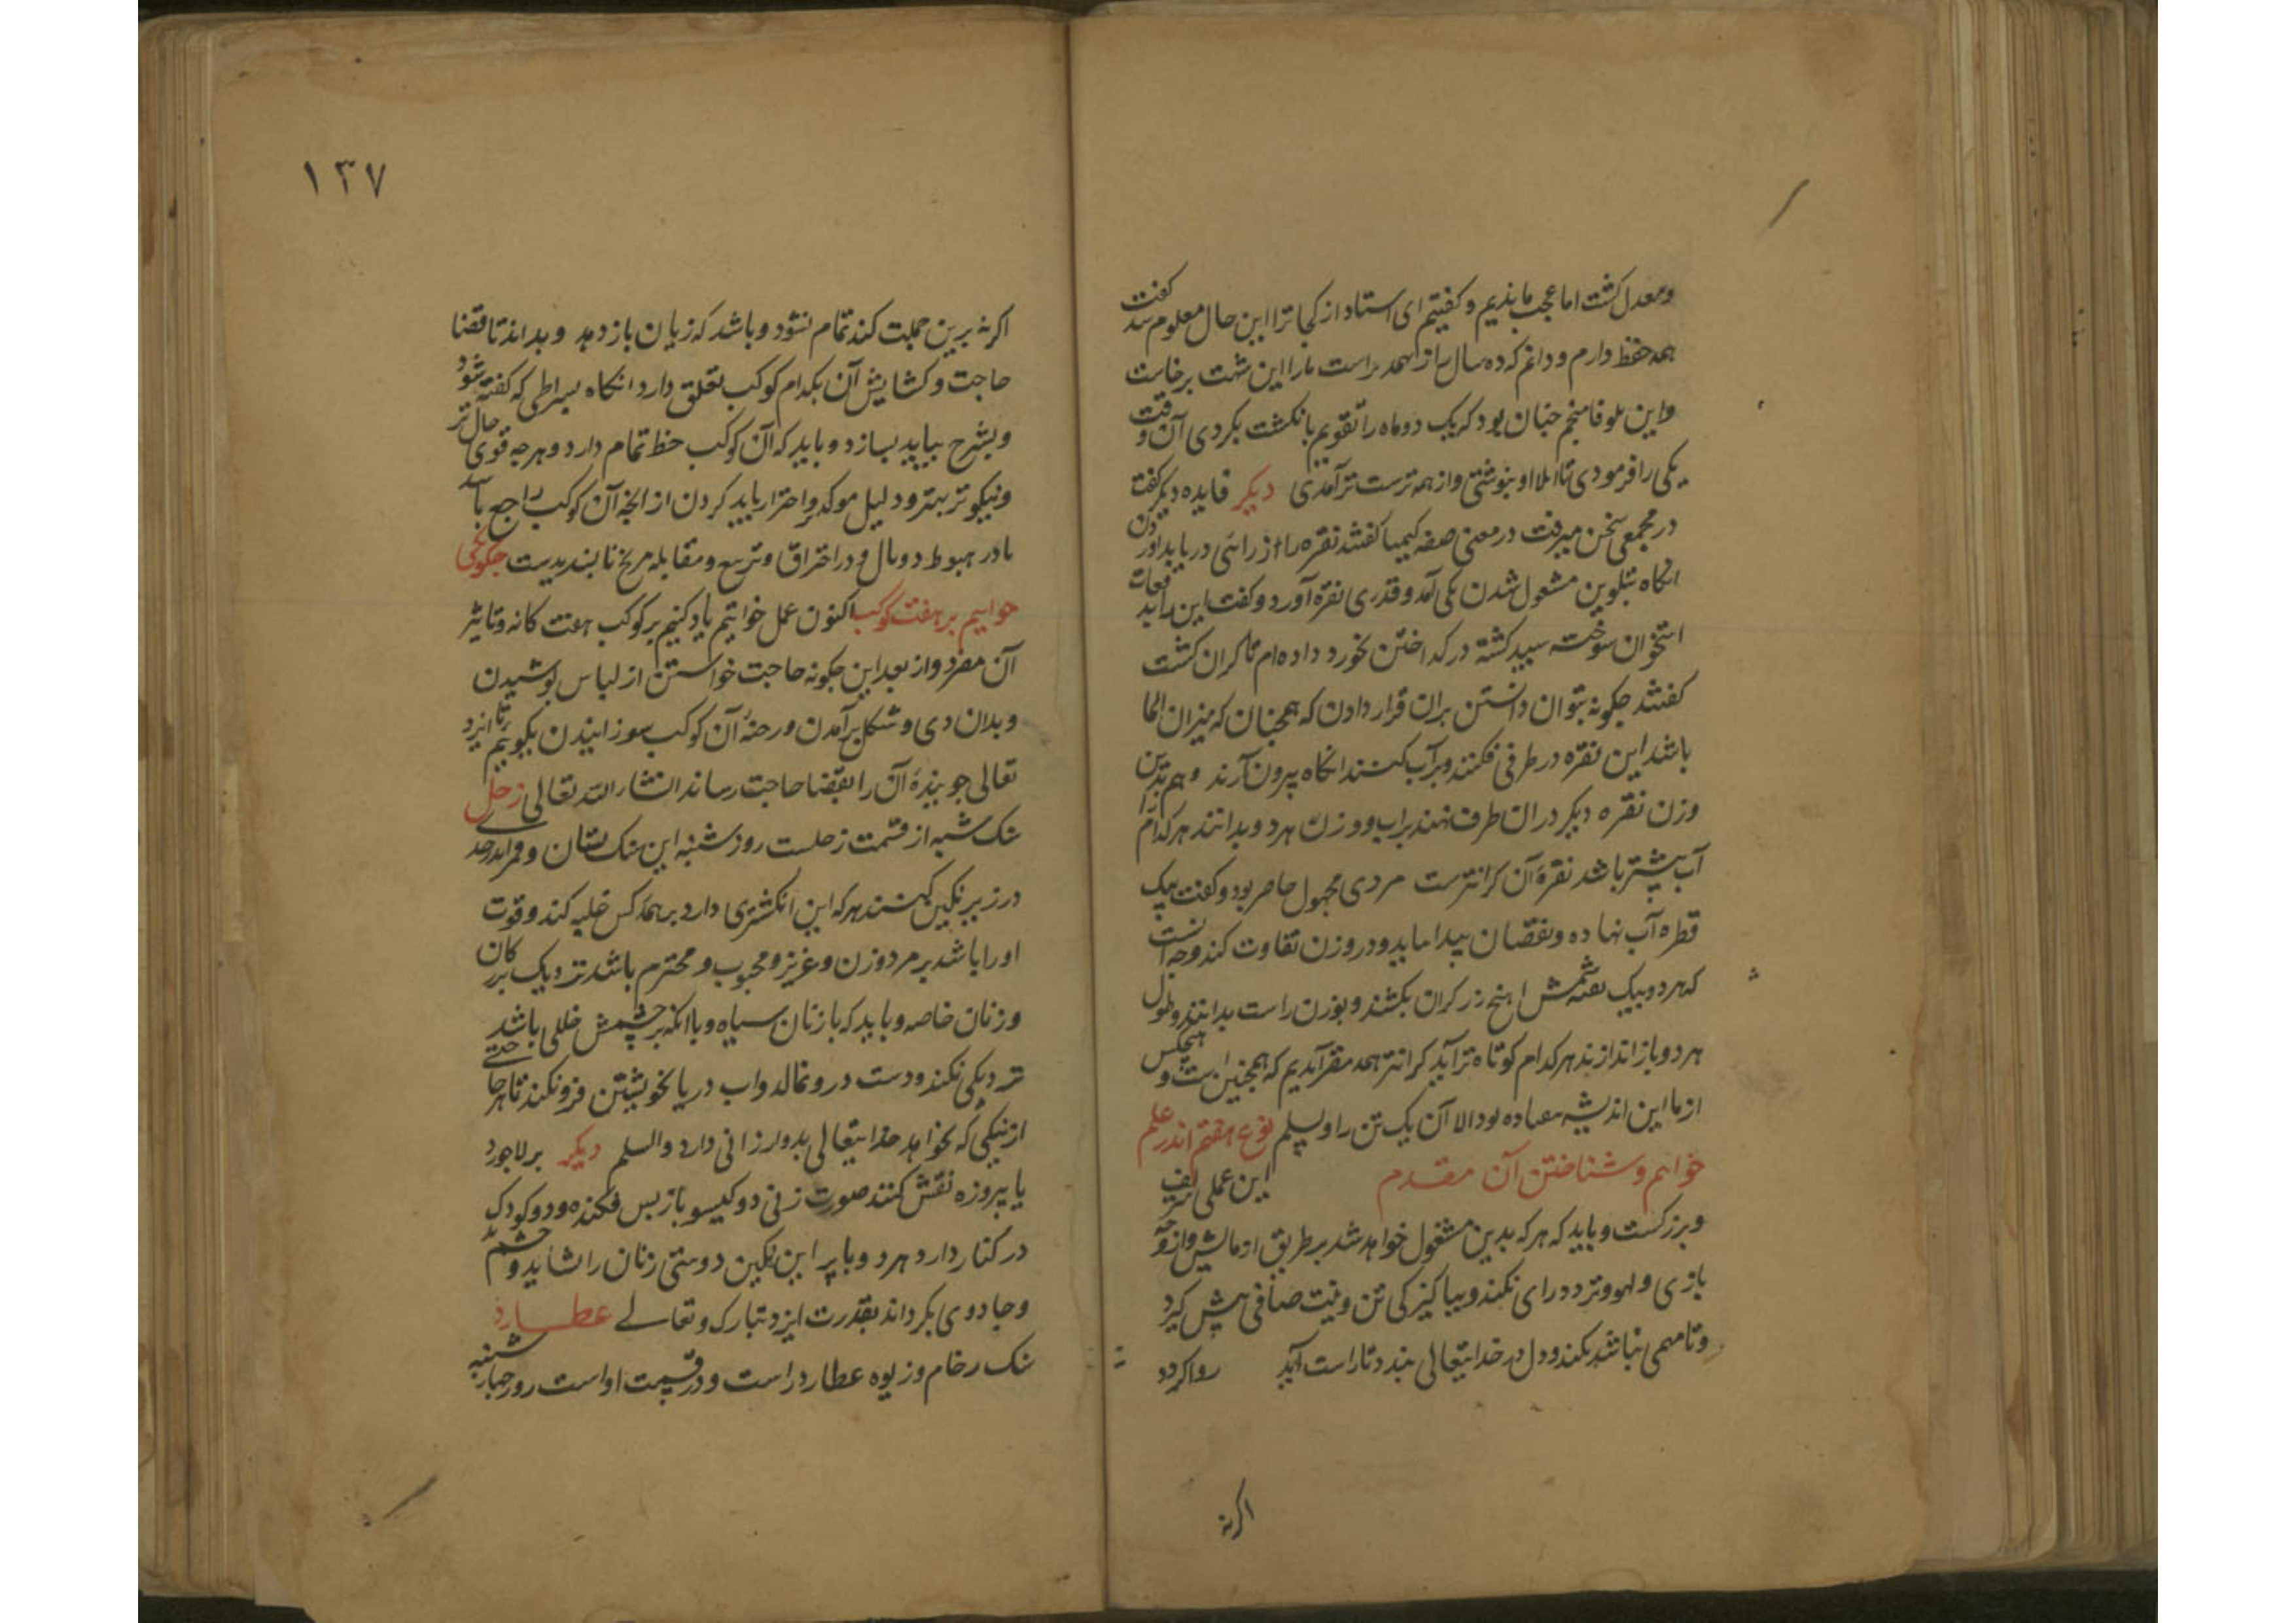 ومعدل کشت اما عجب ماندیم وکفتیم ای استاد از کجا ترا این حال معلوم شد کفت
همه حفظ دارم ودانم که ده سال را از همه براست مارا این شهت برخاست
واین بلوقا منجم جنان بود که یک دوماه را تقویم بانکشت بکردی آن وقت
یکی را فرمودی تا املا او بنوشتی واز همه ترست تر آمدی دیکر فایده دیکر کفتا
در مجمعی سخن میرفت در معنی صفه کیمیا کفتند نقره را از راستی دریابد اوردن
انکاه بتلوین مشغول شدن یکی آمد وقدری نقره آورد وکفت این را بد
استخوان سوخته سپید کشته در کداختن بخورد داده ام تا کران کشت
کفتند جکونه بتوان دانستن بران قرار دادن که همجنان که میزان الما
باشد این نقره در ظرفی فکنند وبر آب کنند انکاه بیرون آرند وهم بدین
وزن نقره دیکر دران ظرف نهند براب ووزن هر دو بدانند هر کدام را
آب بیشتر باشد نقرۀ آن کرانترست مردی مجهول حاضر بود وکفت بیک
قطره آب نهاده ونقصان پیدا ماید ودر وزن تفاوت کند وجه آنست
که هر دو بیک شمش اهنج زرکران بکشند وبوزن راست بدانند وطول
هر دو باز اندازند هر کدام کوتاه تر آید کرانتر همه مقر آمدیم که همجنین است وهیجکس
از ما این اندیشه نهاده بود الا آن یک تن را ولسلم نوع هفتم اندر علم
خواتم وشناختن آن مقدم این عملی شریف
وبزرکست وباید که هر که بدین مشغول خواهد شد بر طریق ازمایش واز وجه
بازی ولهو وتردد رای نکند وبپاکیزکی تن ونیت صافی پیش کیرد
وتا مهمی نباشد نکند ودل در خدایتعالی بندد تا راست آید روا کردد
اکرنه
۱۳۷
اکرنه برین جملت کند تمام نشود وباشد که زیان باز دهد وبداند تا قضا
حاجت وکشایش آن بکدام کوکب تعلق دارد انکاه بشرطی که کفته شود
وبشرح بیاید بسازد وباید که آن کوکب حظ تمام دارد وهرچه قوی حال تر
ونیکوتر بهتر ودلیل موکدتر واحتراز باید کردن از انچه آن کوکب راجع باشد
یا در هبوط ووبال ودر احتراق وتربیع ومقابله مریخ نا پسندیدیست جکونکی
خواتیم بر هفت کوکب اکنون عمل خواتیم یاد کنیم بر کوکب هفت کانه وتاثیر
آن مفرد واز بعد این جکونه حاجت خواستن از لباس پوشیدن
وبدان زی وشکل برآمدن ودخنۀ آن کوکب سوزانیدن بکوییم تا ایزد
تعالی جویندۀ آن را بقضا حاجت رساند انشاء الله تعالی زحل
سنک شبه از قسمت زحلست روز شنبه این سنک بستان وقمر اندر جدی
در زیر نکین کنند هر که این انکشتری دارد بر همه کس غلبه کند وقوت
اورا باشد بر مرد وزن وعزیز ومحبوب ومحترم باشد نزدیک بزرکان
وزنان خاصه وباید که با زنان سیاه وبا انکه بر چشمش خللی باشد
نزدیکی نکند ودست در ونمالد واب دریا بخویشتن فرو نکند تا هر حاجتی
از نیکی که بخواهد خدایتعالی بدو ارزانی دارد والسلم دیکر بر لاجورد
یا پیروزه نقش کنند صورت زنی دو کیسو باز پس فکنده ودو کودک
در کنار دارد هر دو باپر این نکین دوستی زنان را شاید وچشم بد
وجادوی بکرداند بقدرت ایزد تبارک وتعالی عطارد
سنک رخام وزیوه عطارد راست ودر قسمت اواست روز چهارشنبه